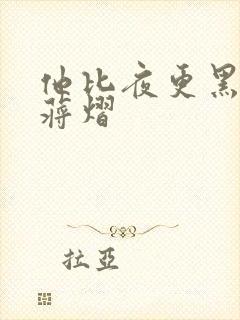 他比夜更黑
蒋熠
拉亞